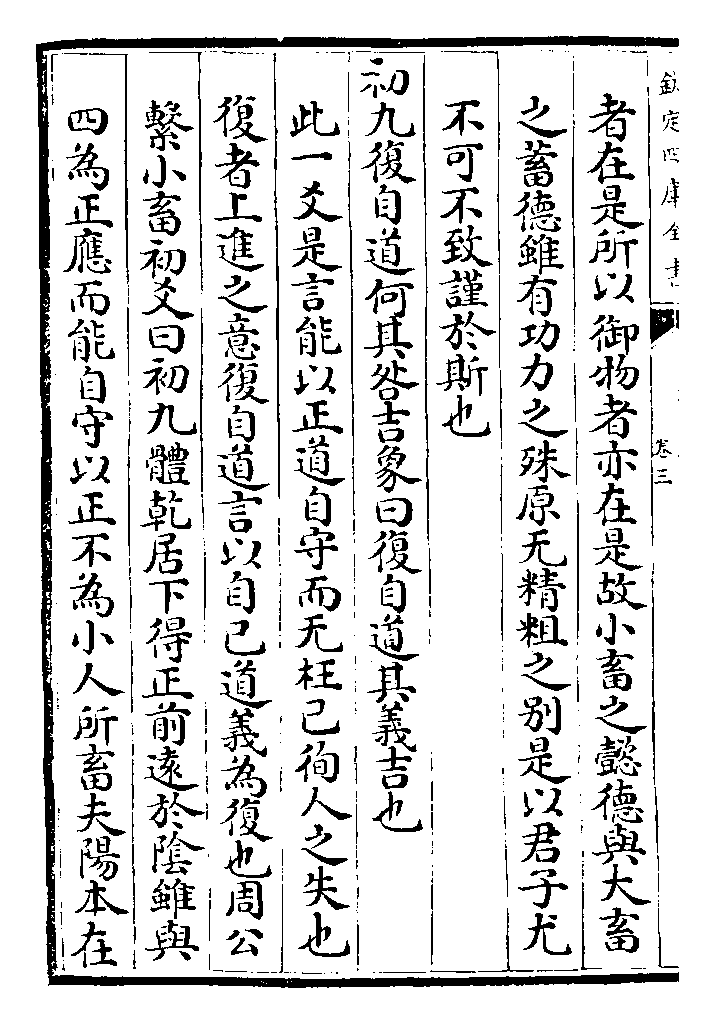 欽定四庫全書
卷三
者在是所以御物者亦在是故小畜之懿德與大畜
之蓄德雖有功力之殊原无精粗之别是以君子尤
不可不致謹於斯也
初九復自道何其咎吉象曰復自道其義吉也
此一爻是言能以正道自守而无枉已徇人之失也
復者上進之意復自道言以自已道義為復也周公
繫小畜初爻曰初九體乾居下得正前逺於陰雖與
四為正應而能自守以正不為小人所畜夫陽本在